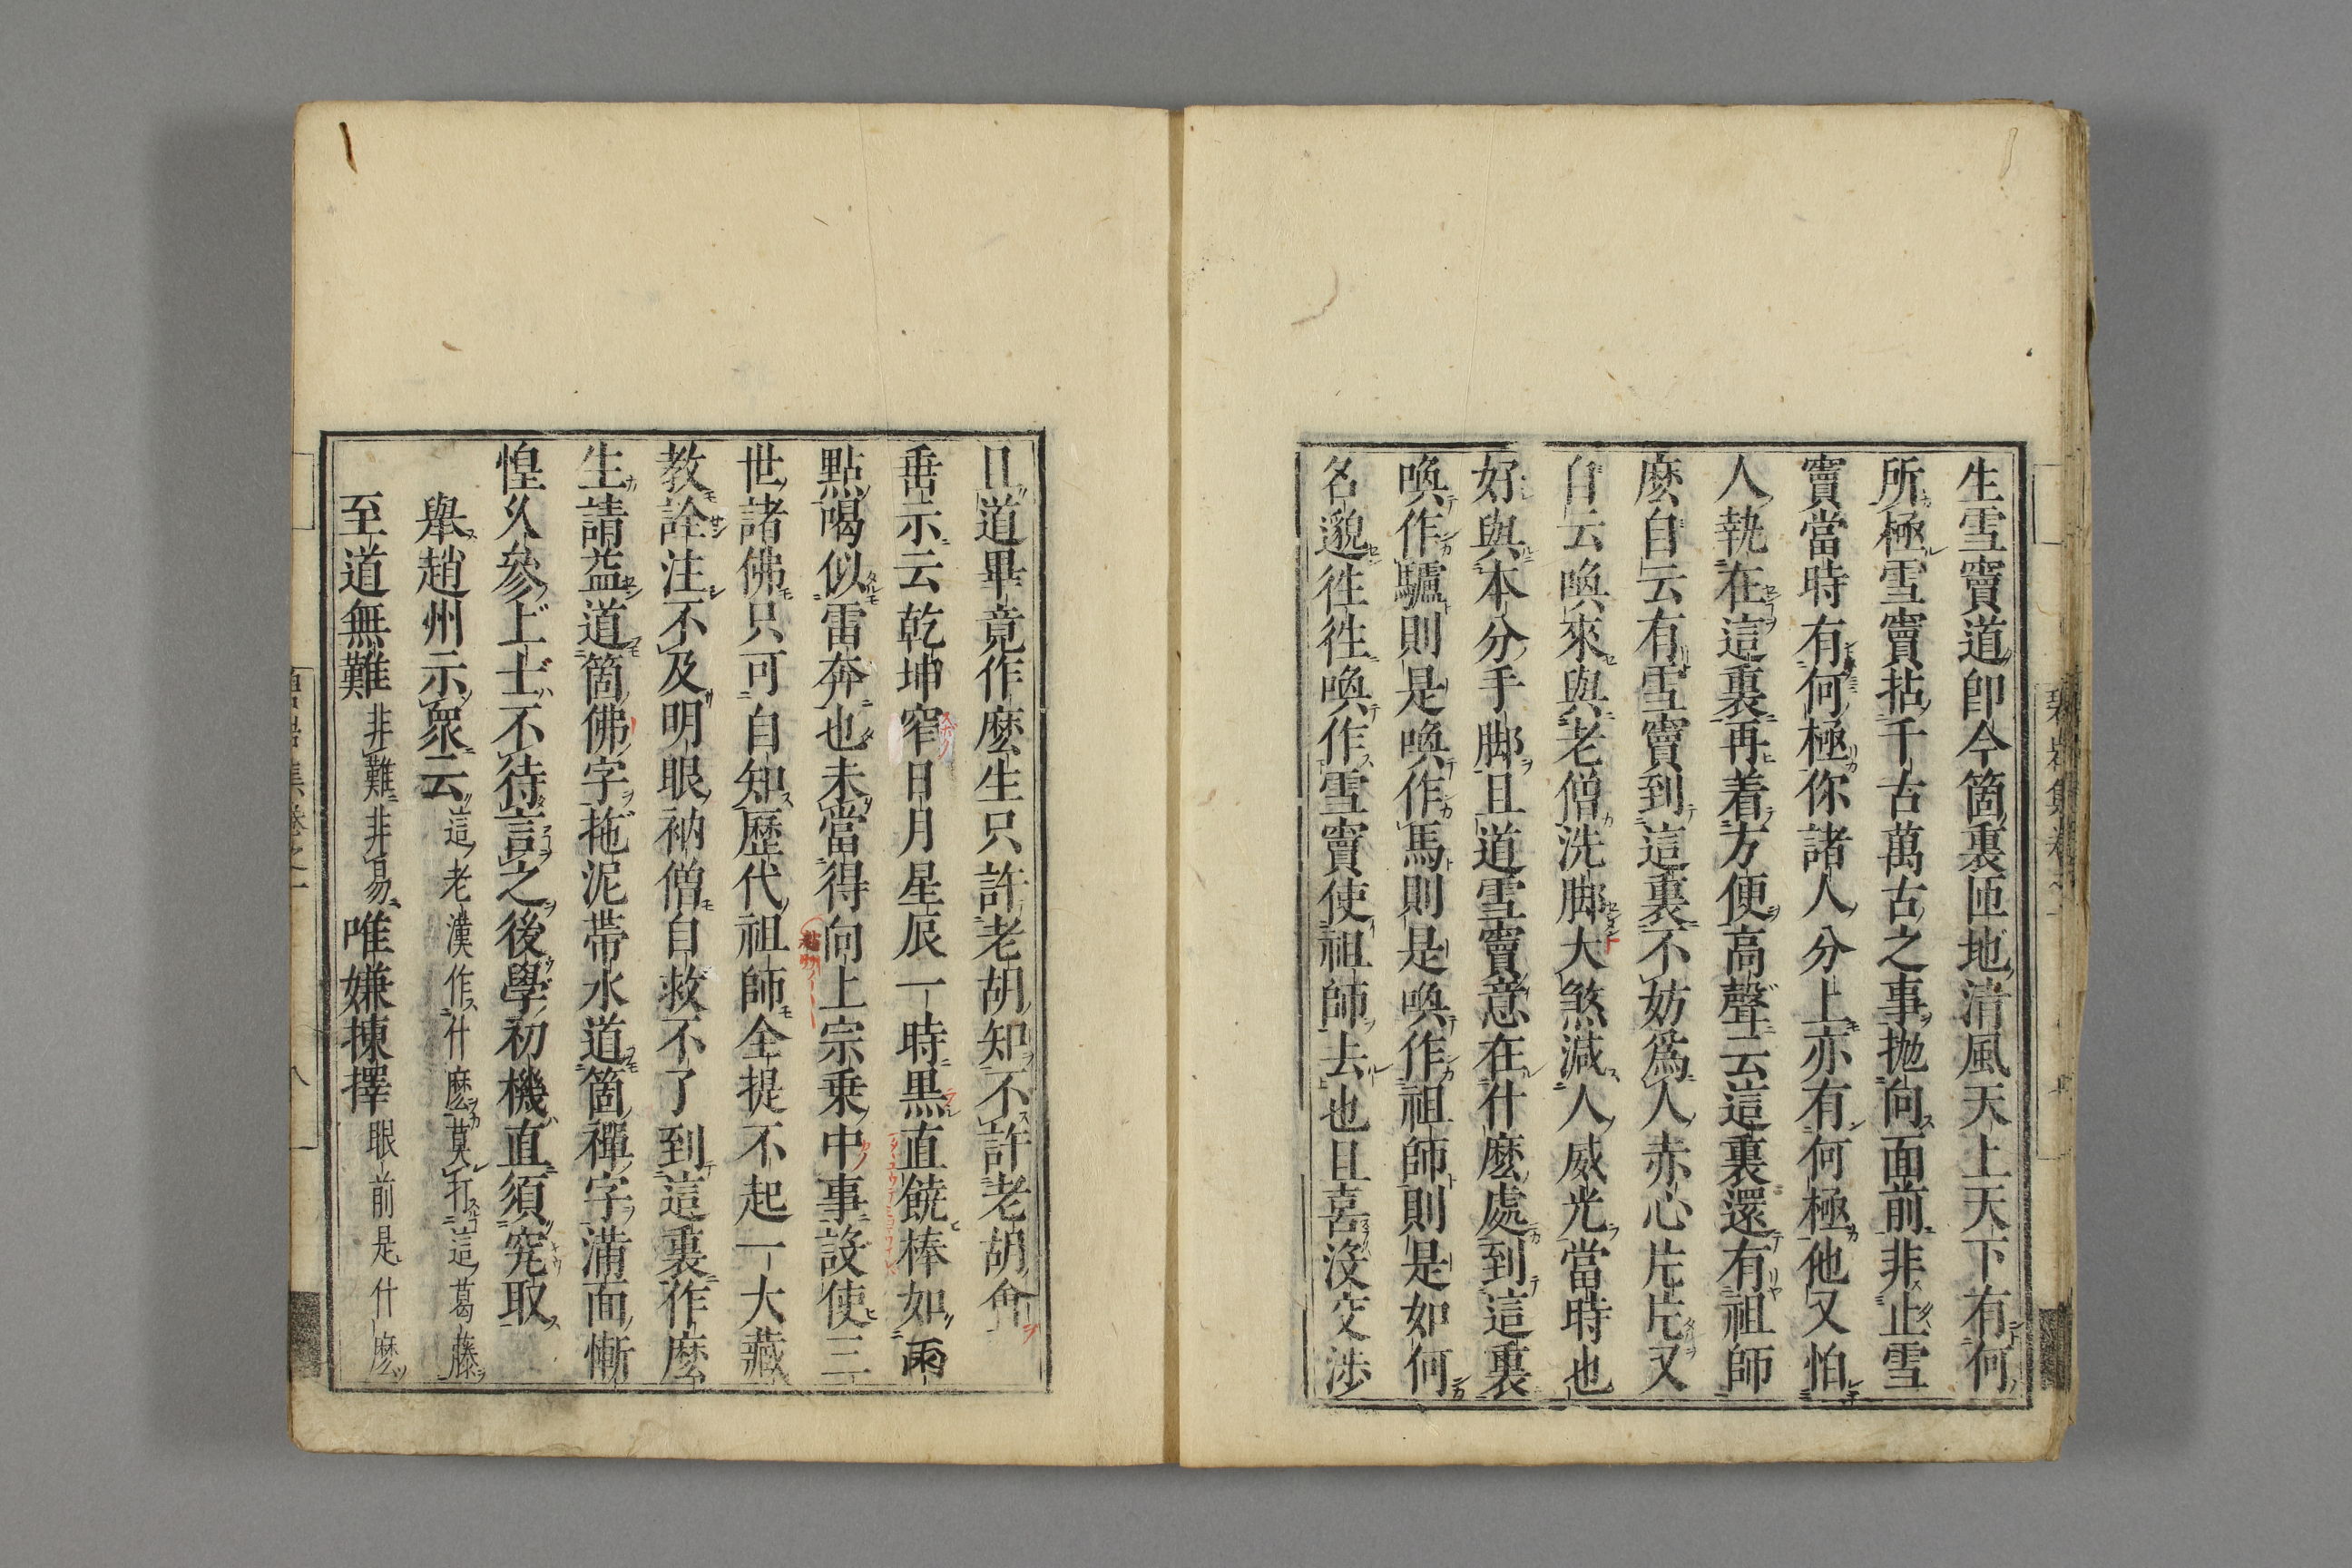 生雪竇道即今箇裏匝地清風天上天下有何
所極雪竇拈千古萬古之事拋向面前非止雪
竇當時有何極你諸人分上亦有何極他又怕
人執在這裏再着方便高聲云這裏還有祖師
麽自云有雪竇到這裏不妨爲人赤心片片又
自云喚來與老僧洗脚大煞減人威光當時也
好與本分手脚且道雪竇意在什麽處到這裏
喚作驢則是喚作馬則是喚作祖師則是如何
名邈徃徃喚作雪竇使祖師去也且喜沒交涉
且道畢竟作麽生只許老胡知不許老胡會
垂示云乾坤窄日月星辰一時黑直饒棒如雨
點喝似雷奔也未當得向上宗乗中事設使三
世諸佛只可自知歷代祖師全提不起一大藏
教詮注不及明眼衲僧自救不了到這裏作麽
生請益道箇佛字拖泥帶水道箇禪字滿面慚
惶久參上士不待言之後學初機直須究取
舉趙州示衆云這老漢作什麽莫打這葛藤
至道無難非難非易唯嫌揀擇眼前是什麽